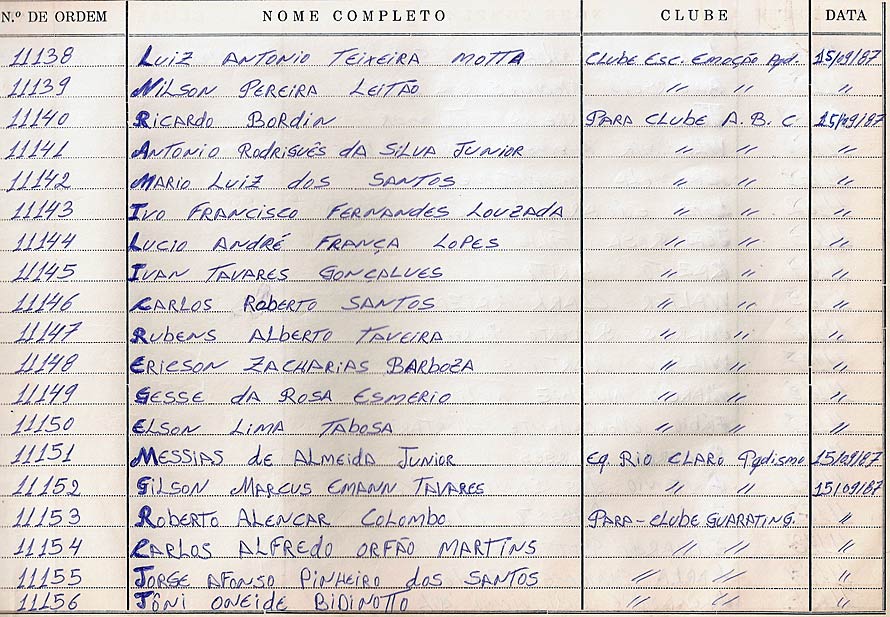 N.º DE ORDEM NOME COMPLETO CLUBE DATA
11138 Luiz Antonio Teixeira Motta Clube Esc. Emoção Pqd. 15/09/87
11139 Nilson Pereira Leitão " " "
11140 Ricardo Bordin Para Clube A.B.C 15/09/87
11141 Antonio Rodriguês da Silva Junior " " "
11142 Mario Luiz dos Santos " " "
11143 Ivo Francisco Fernandes Louzada " " "
11144 Lucio André França Lopes " " "
11145 Ivan Tavares Gonçalves " " "
11146 Carlos Roberto Santos " " "
11147 Rubens Alberto Taveira " " "
11148 Ericson Zacharias Barboza " " "
11149 Gesse da Rosa Esmerio " " "
11150 Elson Lima Tabosa " " "
11151 Messias de Almeida Junior Eq. Rio Claro Pqdismo 15/09/87
11152 Gilson Marcus Emann Tavares " " 15/09/87
11153 Roberto Alencar Colombo Para-Clube Guarating. "
11154 Carlos Alfredo Orfão Martins " " "
11155 Jorge Afonso Pinheiro dos Santos " " "
11156 Jôni Oneide Bidinotto " " "